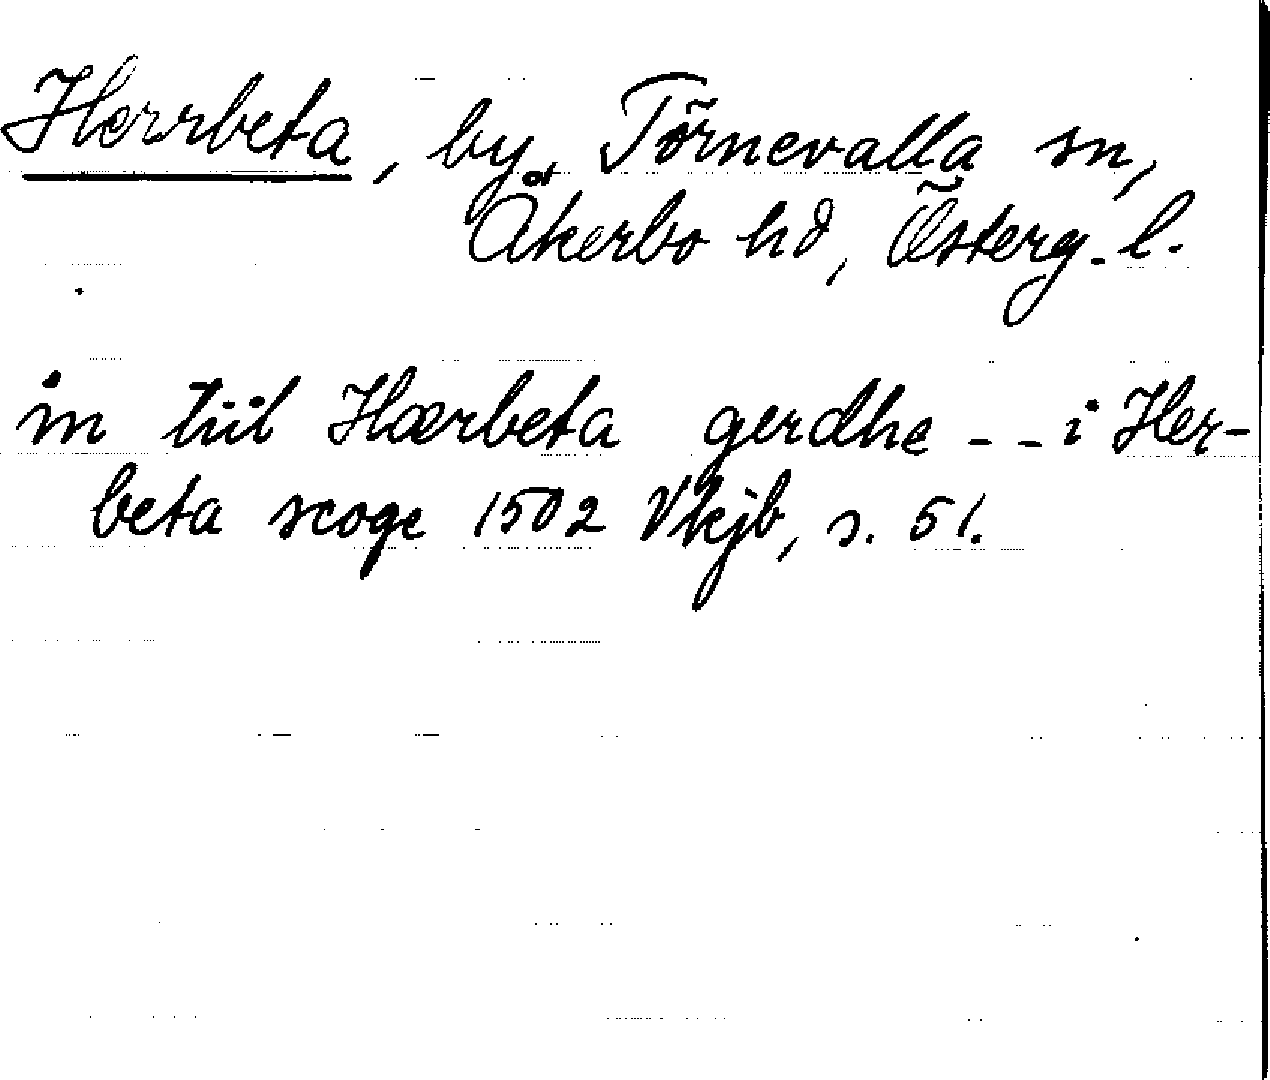 Herrbeta, by, Törnevalla sn,
Åkerbo hd, Österg. l.
in tiil Hærbeta gerdhe - - i Her-
beta scoge 1502 Vkjb, s. 51.